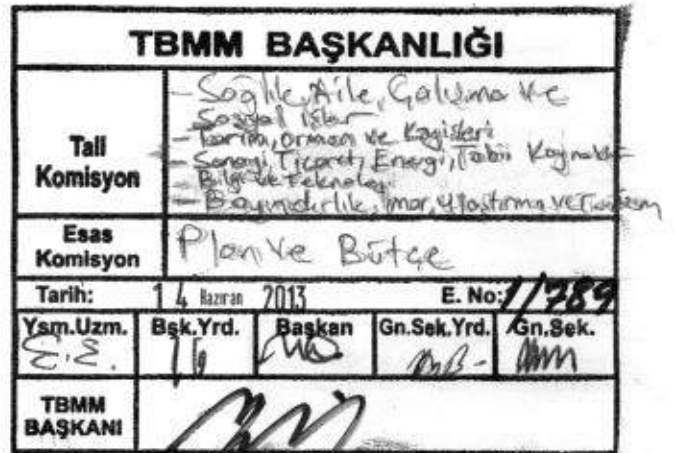 TBMM BAŞKANLIĞI
Tali
Komisyon
- Sağlık, Aile, Çalışma ve
Sosyal İşler
- Tarım, Orman ve Köyişleri
- Sanayi, Ticaret, Enerji, Tabii Kaynaklar
- Bilgi ve Teknoloji
- Bayındırlık, imar, ulaştırma ve Turizm
Esas
Komisyon
Plan ve Bütçe
Tarih: 14 Haziran 2013 E. No: 1/789
Ysm.Uzm. Bşk.Yrd. Başkan Gn.Sek.Yrd. Gn.Sek.
E.E.
TBMM
BAŞKANI